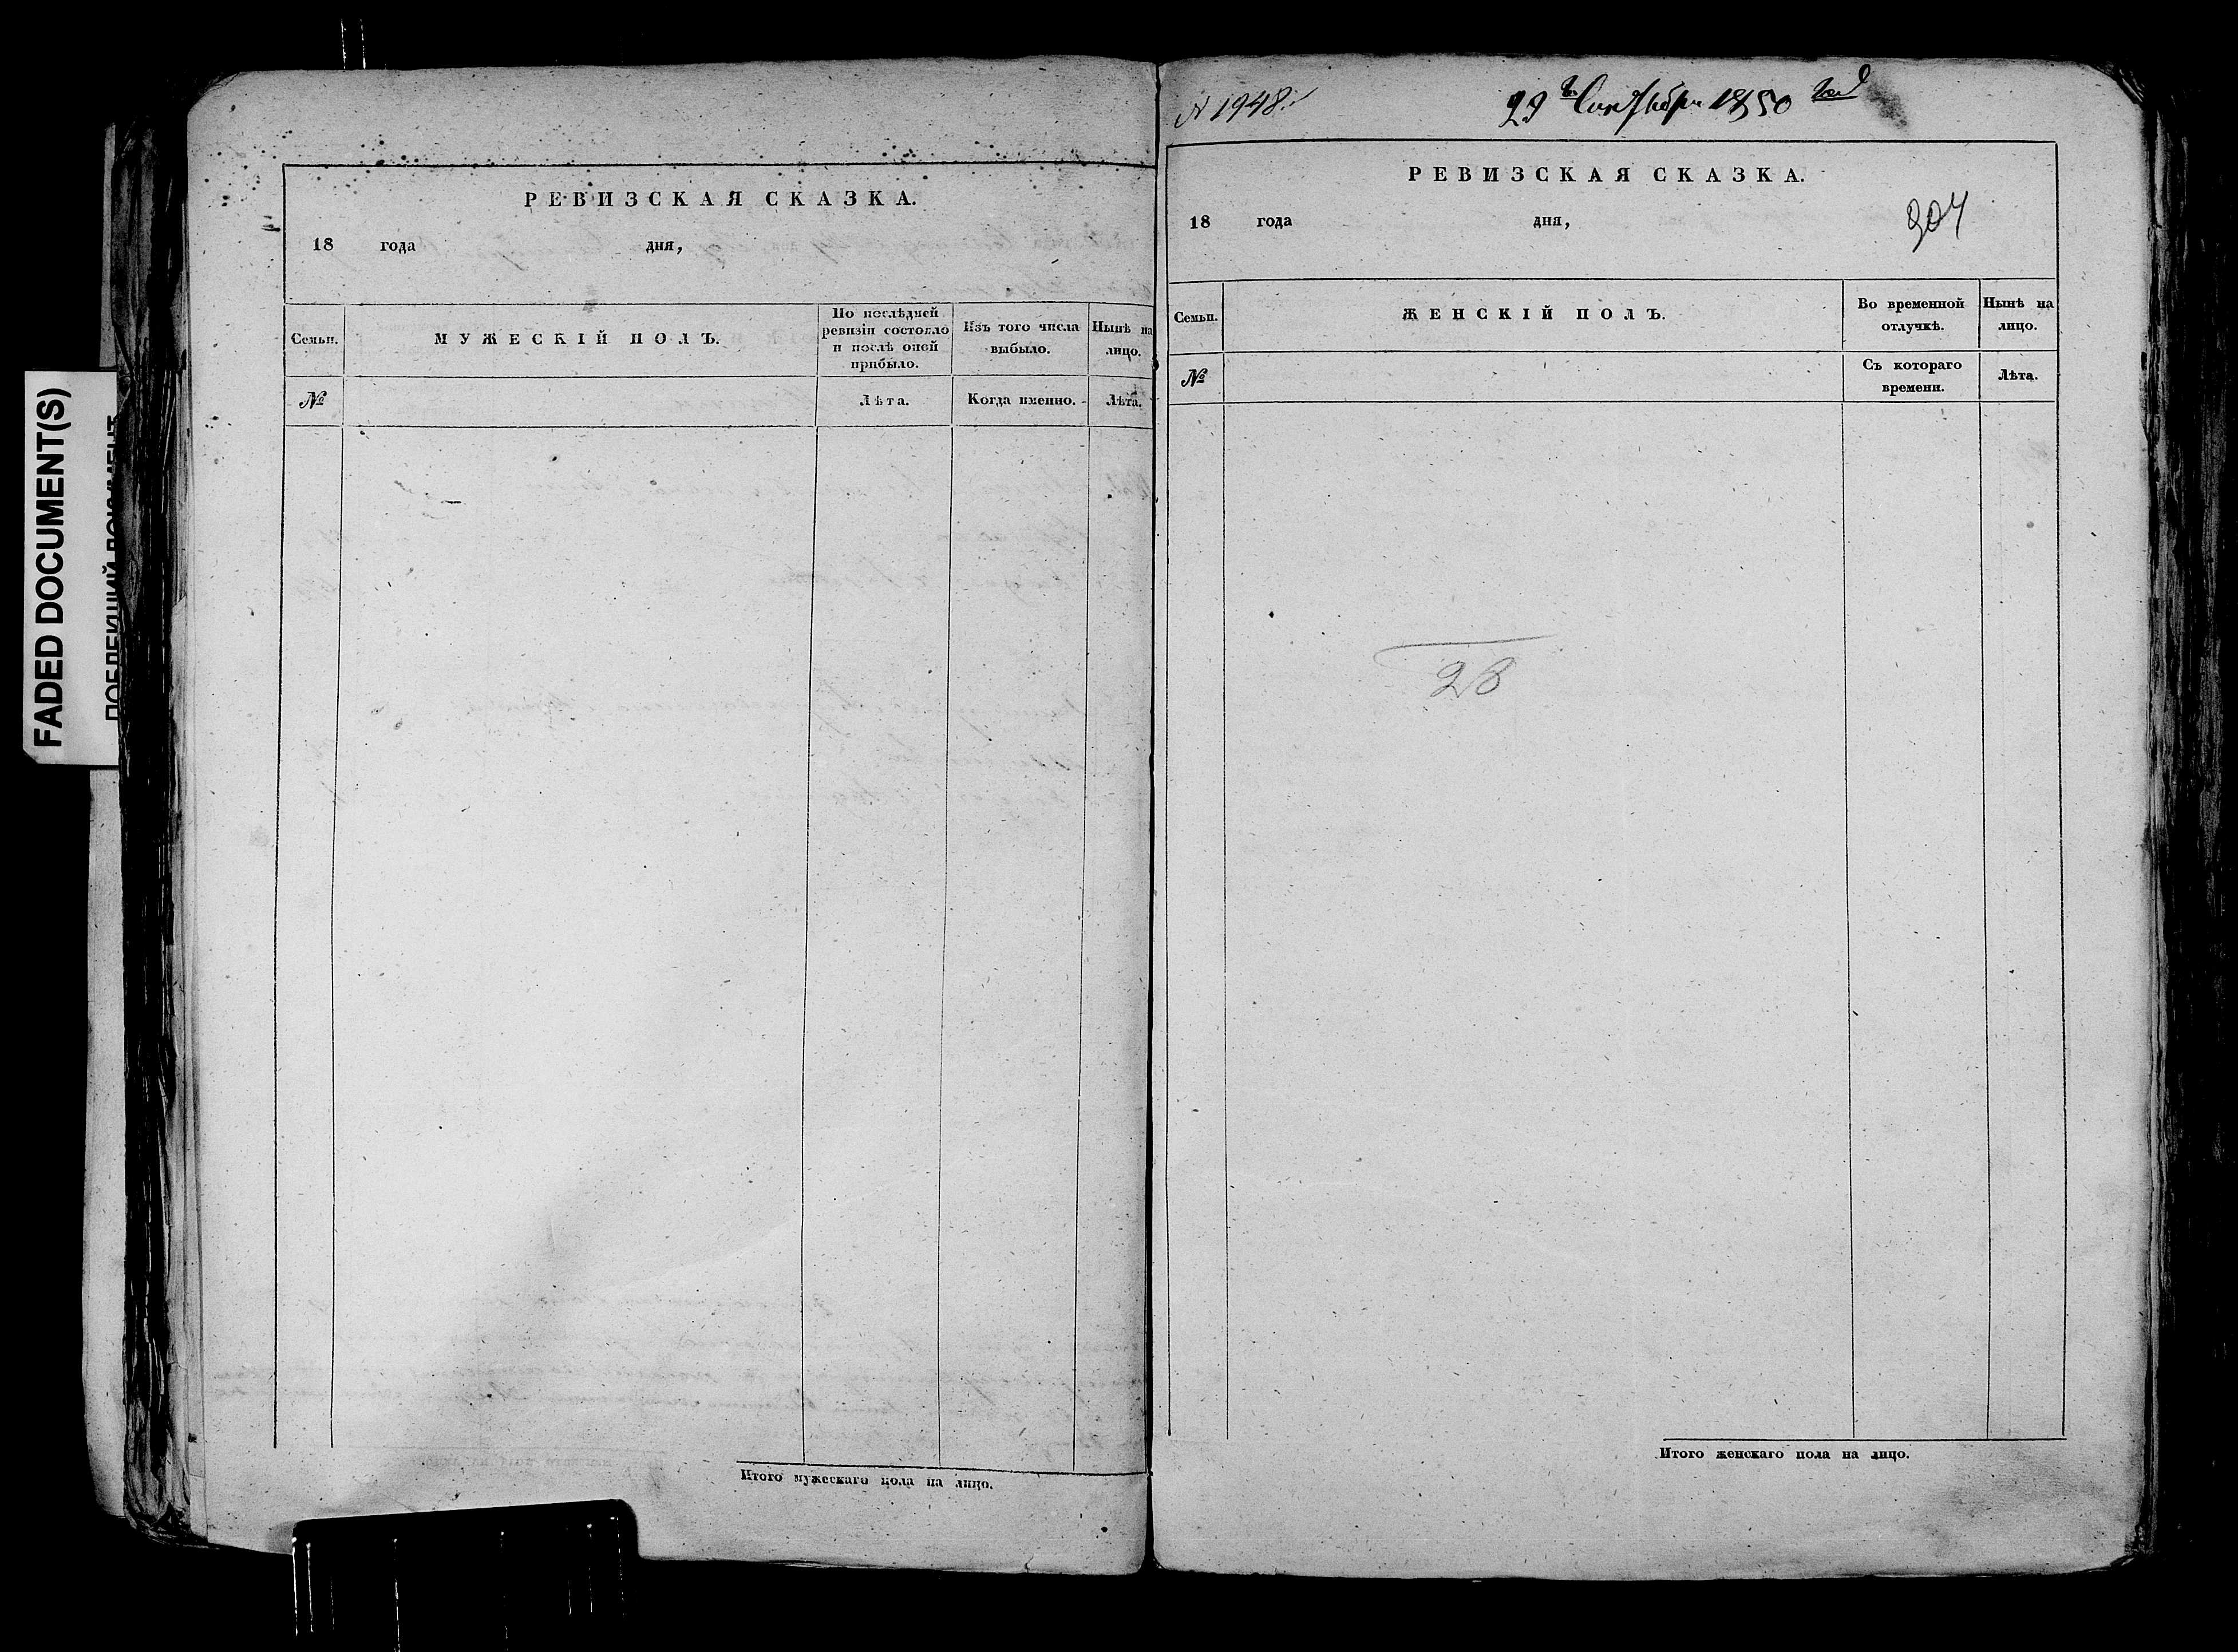 FADED DOCUMENT(S)
РЕВИЗСКАЯ СКАЗКА.
18 года дня,
Семьи.
МУЖЕСКІЙ ПОЛЪ.
По послѣдней
ревизіи состояло
и послѣ оной
прибыло.
Изъ того числа
выбыло.
Нынѣ на
лицо.
№
Лѣта.
Когда именно.
Лѣта.
Итого мужескаго пола на лицо.
N 1948.
29 го Сентября 1850 года
РЕВИЗСКАЯ СКАЗКА.
18 года дня,
304
Семьи.
ЖЕНСКІЙ ПОЛЪ.
Во временной
отлучкѣ.
Нынѣ на
лицо.
№
Съ котораго
времени.
Лѣта.
28
Итого женскаго пола на лицо.